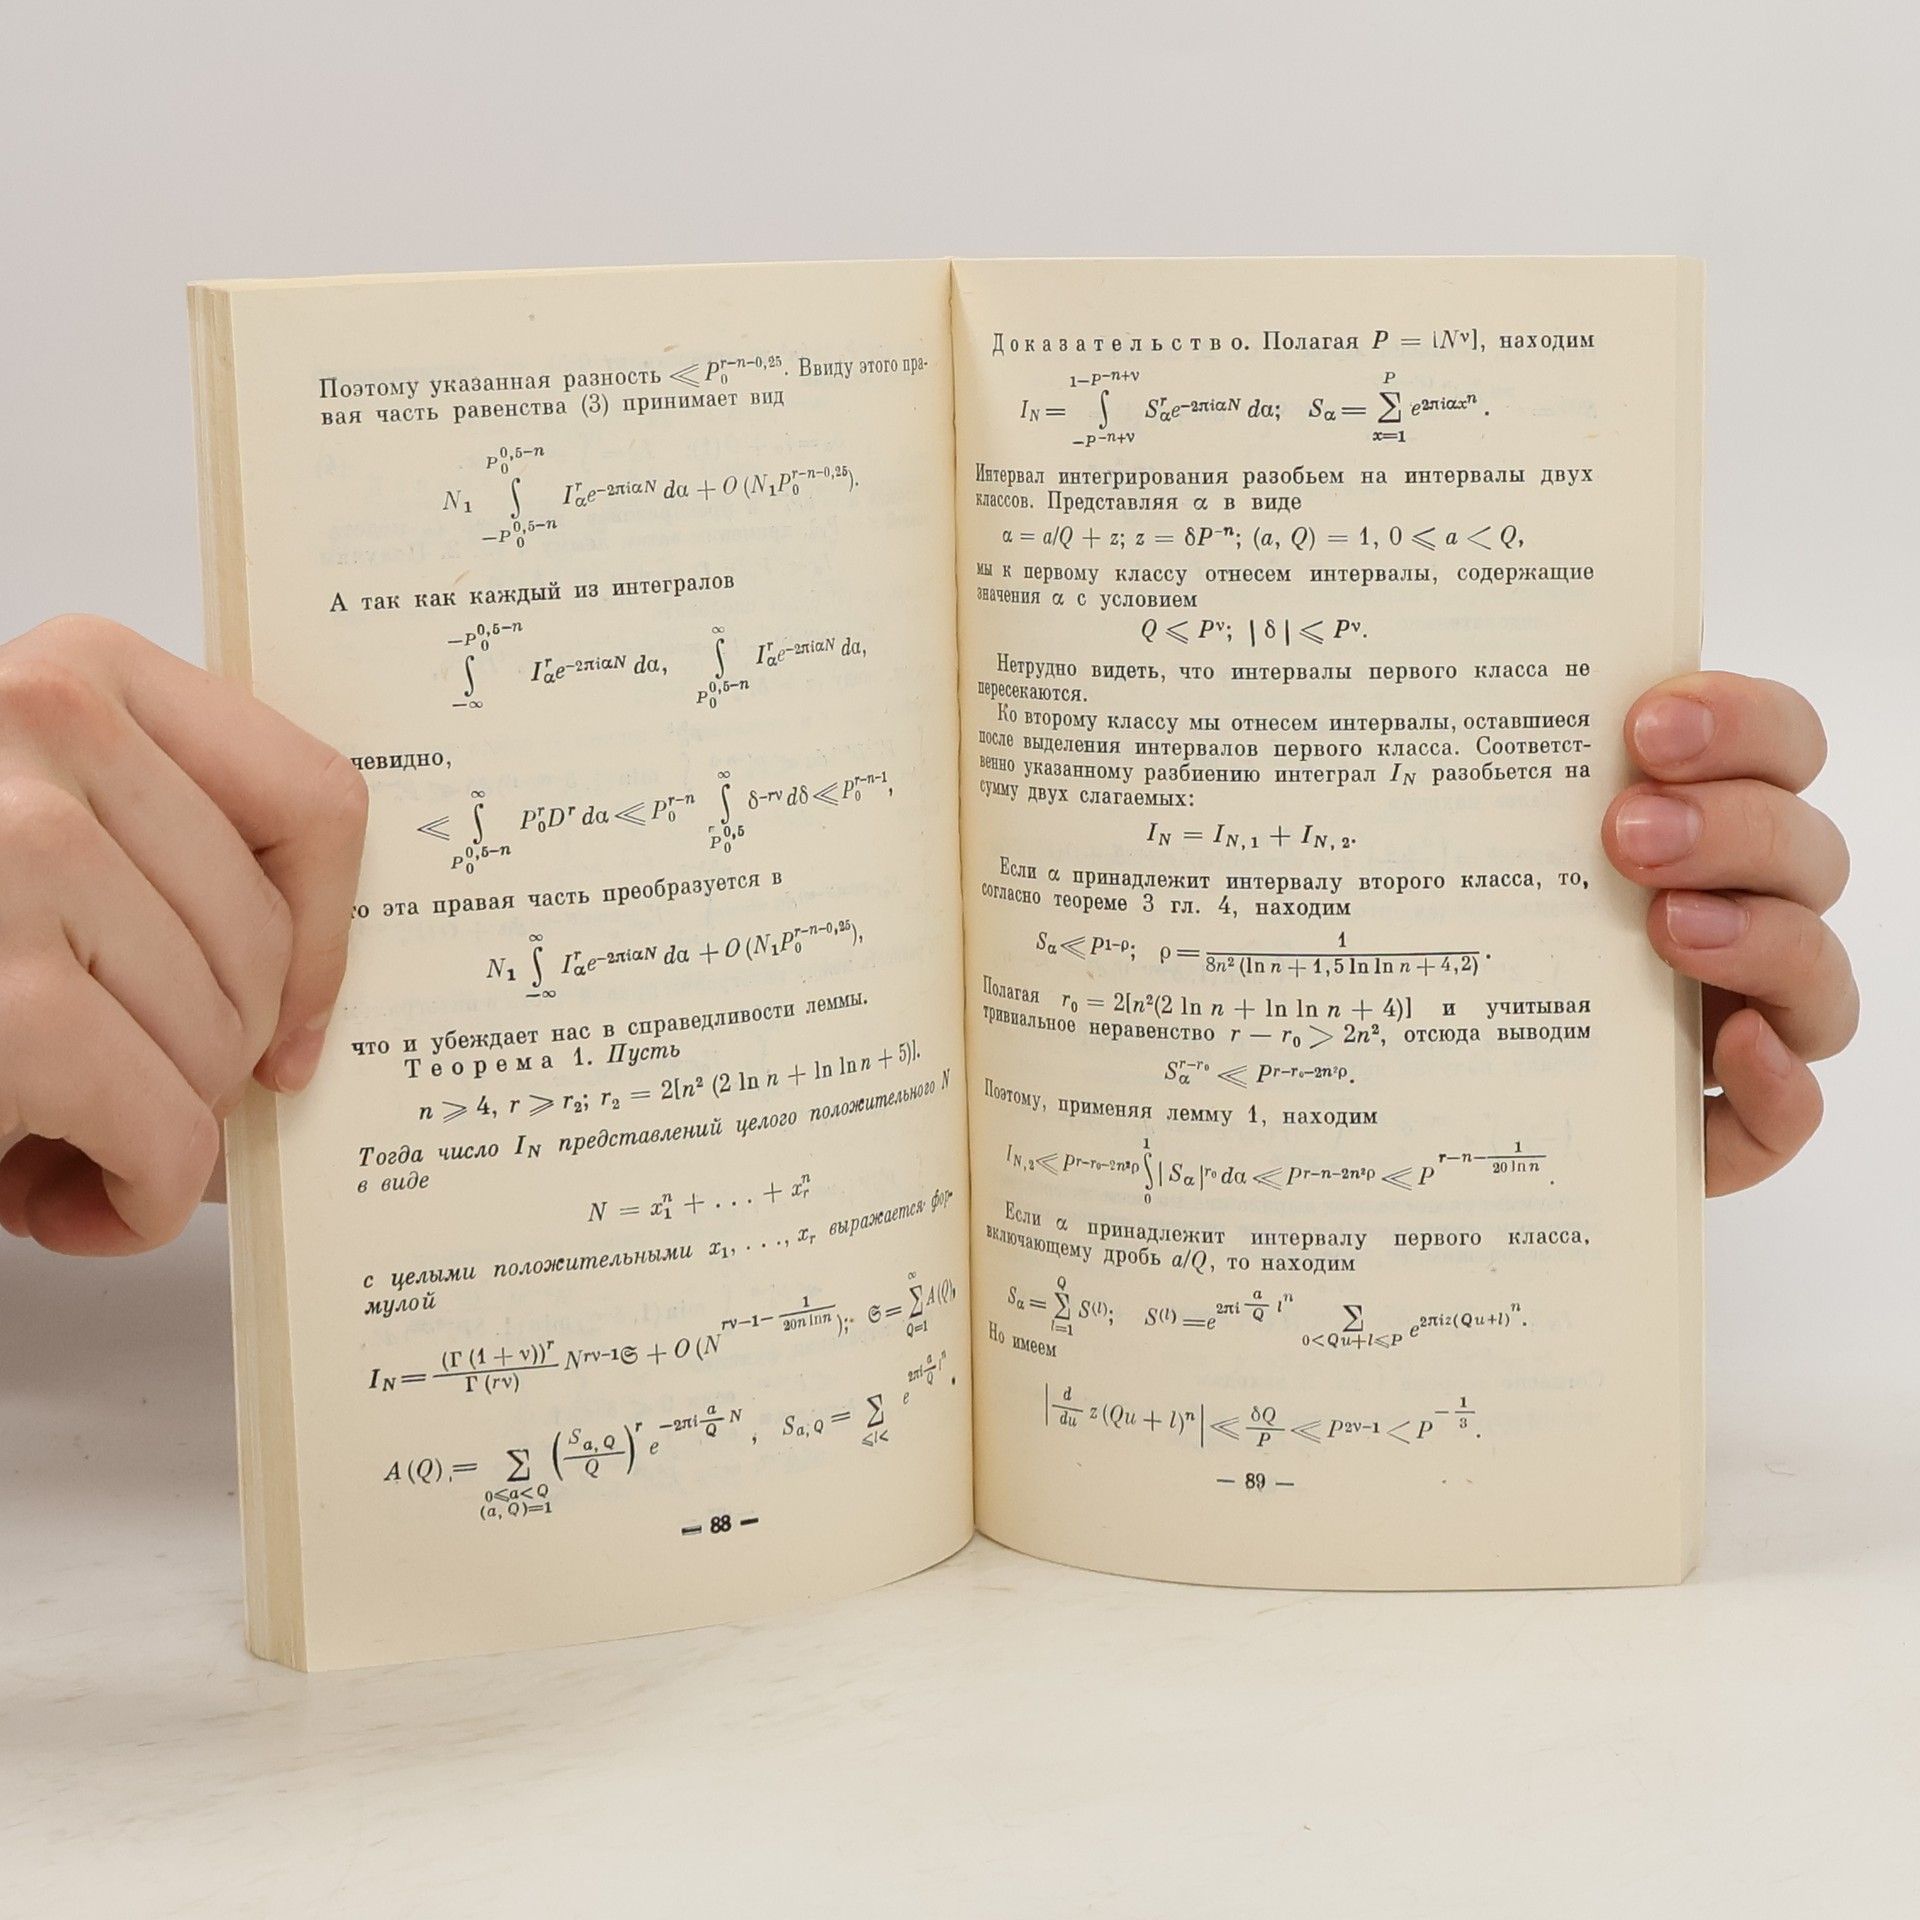 Поэтому указанная разность ≪ P₀^{r−n−0,25}. Ввиду этого пра-
вая часть равенства (3) принимает вид
N₁ ∫_{−P₀^{0,5−n}}^{P₀^{0,5−n}} I_α^r e^{−2πiαN} dα + O (N₁P₀^{r−n−0,25}).
А так как каждый из интегралов
∫_{−∞}^{−P₀^{0,5−n}} I_α^r e^{−2πiαN} dα, ∫_{P₀^{0,5−n}}^{∞} I_α^r e^{−2πiαN} dα,
чевидно,
≪ ∫_{P₀^{0,5−n}}^{∞} P₀^r D^r dα ≪ P₀^{r−n} ∫_{P₀^{0,5}}^{∞} δ^{−rν} dδ ≪ P₀^{r−n−1},
то эта правая часть преобразуется в
N₁ ∫_{−∞}^{∞} I_α^r e^{−2πiαN} dα + O (N₁P₀^{r−n−0,25}),
что и убеждает нас в справедливости леммы.
Теорема 1. Пусть
n ⩾ 4, r ⩾ r₂; r₂ = 2[n² (2 ln n + ln ln n + 5)].
Тогда число I_N представлений целого положительного N
в виде
N = x₁ⁿ + . . . + x_rⁿ
с целыми положительными x₁, . . ., x_r выражается фор-
мулой
I_N = \frac{(Γ (1 + ν))^r}{Γ (rν)} N^{rν−1}𝔖 + O (N^{rν−1−\frac{1}{20n ln n}}); 𝔖 = ∑_{Q=1}^{∞} A(Q),
A (Q) = ∑_{0⩽a<Q (a, Q)=1} (\frac{S_{a, Q}}{Q})^r e^{−2πi\frac{a}{Q}N}, S_{a, Q} = ∑_{⩽l<} e^{2πi\frac{a}{Q}lⁿ}.
— 88 —
Доказательство. Полагая P = [N^ν], находим
I_N = ∫_{−P^{−n+ν}}^{1−P^{−n+ν}} S_α^r e^{−2πiαN} dα; S_α = ∑_{x=1}^{P} e^{2πiαxⁿ}.
Интервал интегрирования разобьем на интервалы двух
классов. Представляя α в виде
α = a/Q + z; z = δP^{−n}; (a, Q) = 1, 0 ⩽ a < Q,
мы к первому классу отнесем интервалы, содержащие
значения α с условием
Q ⩽ P^ν; | δ | ⩽ P^ν.
Нетрудно видеть, что интервалы первого класса не
пересекаются.
Ко второму классу мы отнесем интервалы, оставшиеся
после выделения интервалов первого класса. Соответст-
венно указанному разбиению интеграл I_N разобьется на
сумму двух слагаемых:
I_N = I_{N, 1} + I_{N, 2}.
Если α принадлежит интервалу второго класса, то,
согласно теореме 3 гл. 4, находим
S_α ≪ P^{1−ρ}; ρ = \frac{1}{8n² (ln n + 1,5 ln ln n + 4,2)}.
Полагая r₀ = 2[n²(2 ln n + ln ln n + 4)] и учитывая
тривиальное неравенство r − r₀ > 2n², отсюда выводим
S_α^{r−r₀} ≪ P^{r−r₀−2n²ρ}.
Поэтому, применяя лемму 1, находим
I_{N, 2} ≪ P^{r−r₀−2n²ρ} ∫_0^1 | S_α |^{r₀} dα ≪ P^{r−n−2n²ρ} ≪ P^{r−n−\frac{1}{20 ln n}}.
Если α принадлежит интервалу первого класса,
включающему дробь a/Q, то находим
S_α = ∑_{l=1}^{Q} S^{(l)}; S^{(l)} = e^{2πi\frac{a}{Q}lⁿ} ∑_{0<Qu+l⩽P} e^{2πiz(Qu+l)ⁿ}.
Но имеем
|\frac{d}{du} z (Qu + l)ⁿ| ≪ \frac{δQ}{P} ≪ P^{2ν−1} < P^{−\frac{1}{3}}.
— 89 —